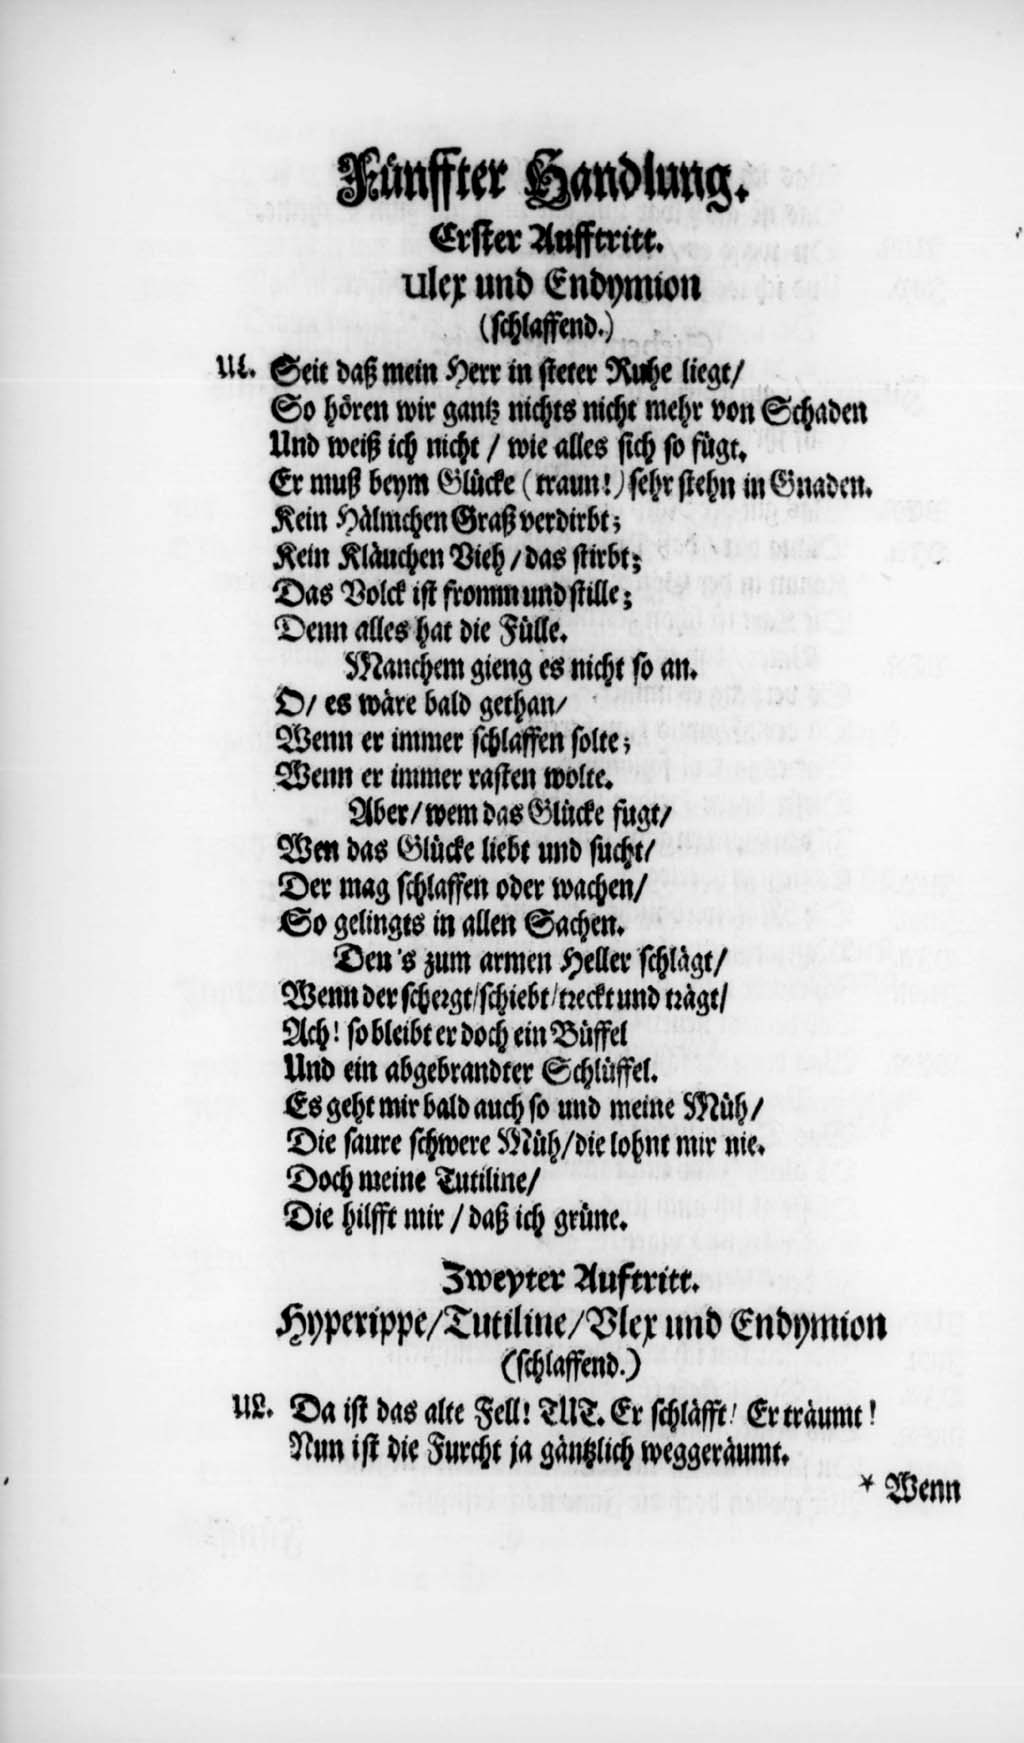 Fünffter Handlung.
Erster Aufftritt.
Ulex und Endymion
(schlaffend.)
Ul. Seit daß mein Herr in steter Ruhe liegt/
So hören wir gantz nichts nicht mehr von Schaden
Und weiß ich nicht / wie alles sich so fügt.
Er muß beym Glücke (traun!) sehr stehn in Gnaden.
Kein Hälmchen Graß verdirbt;
Kein Kläuchen Vieh / das stirbt;
Das Volck ist fromm und stille;
Denn alles hat die Fülle.
Manchem gieng es nicht so an.
O/ es wäre bald gethan/
Wenn er immer schlaffen solte;
Wenn er immer rasten wolte.
Aber/ wem das Glücke fugt/
Wen das Glücke liebt und sucht/
Der mag schlaffen oder wachen/
So gelingts in allen Sachen.
Den's zum armen Heller schlägt/
Wenn der schergt/ schiebt/ treckt und trägt/
Ach! so bleibt er doch ein Büffel
Und ein abgebrandter Schlüffel.
Es geht mir bald auch so und meine Müh/
Die saure schwere Müh/ die lohnt mir nie.
Doch meine Tutiline/
Die hilfft mir / daß ich grüne.
Zweyter Auftritt.
Hyperippe/ Tutiline/ Vlex und Endymion
(schlaffend.)
UL. Da ist das alte Fell! TUT. Er schläfft! Er träumt!
Nun ist die Furcht ja gäntzlich weggeräumt.
* Wenn